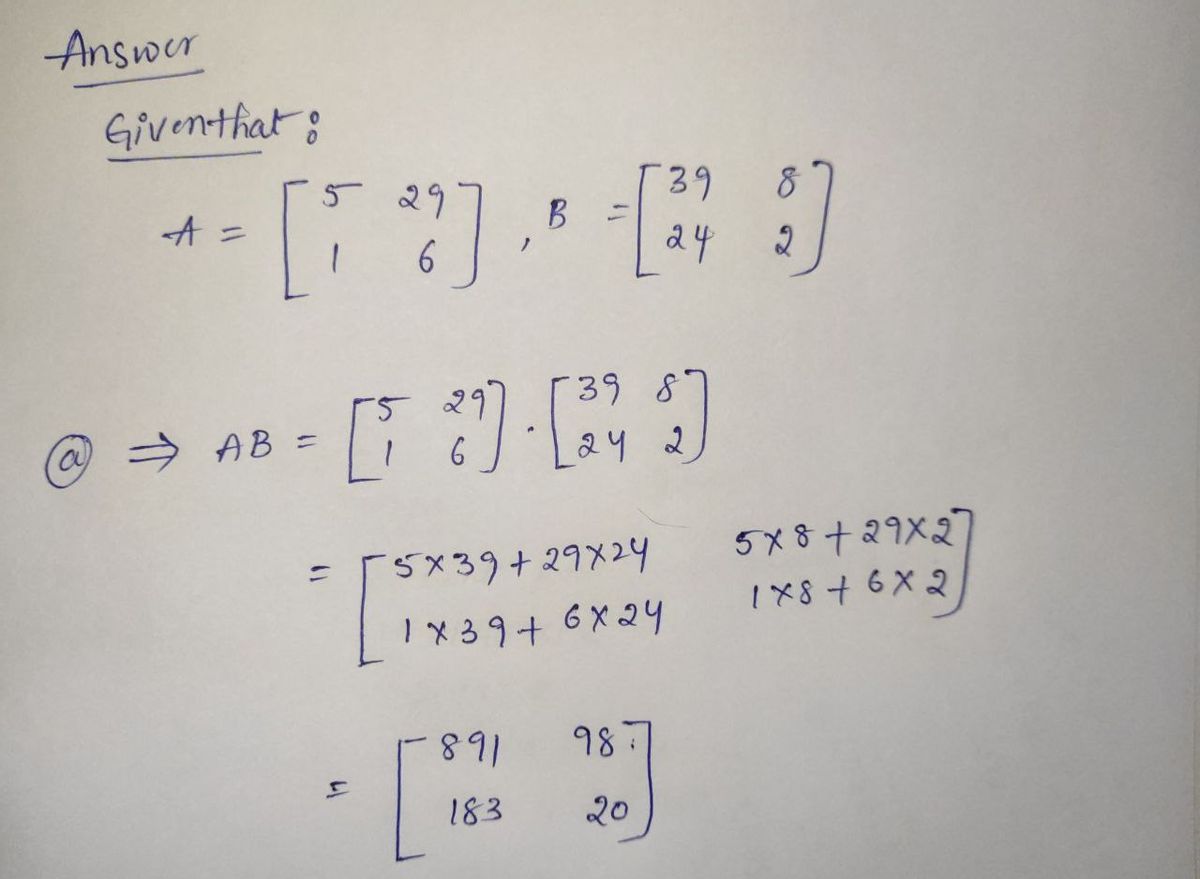 Answer
Given that :
A = [ 5 29
1 6 ] , B = [ 39 8
24 2 ]
(a) ⇒ AB = [ 5 29
1 6 ] . [ 39 8
24 2 ]
= [ 5×39+29×24 5×8+29×2
1×39+6×24 1×8+6×2 ]
= [ 891 98
183 20 ]